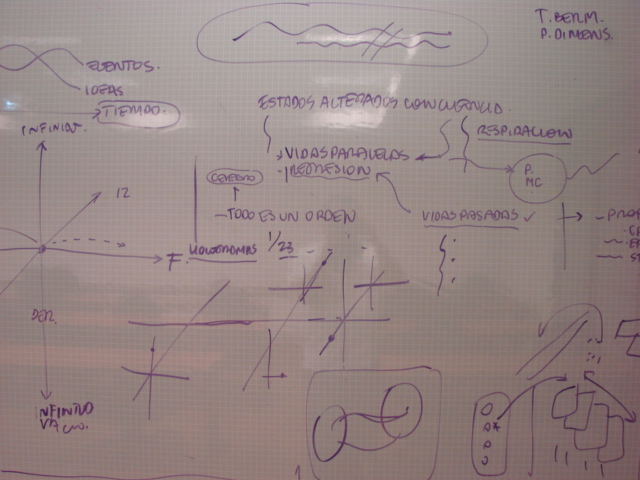 T. BERM.
P. DIMENS.
EVENTOS.
IDEAS
TIEMPO.
INFINIT.
ESTADOS ALTERADOS CONCIENCIA.
RESPIRACION
VIDAS PARALELAS
- REGRESION
P.
MC
12
CEREBRO
- TODO ES UN ORDEN
VIDAS PASADAS ✓
F.
1/23
DER.
INFINITO